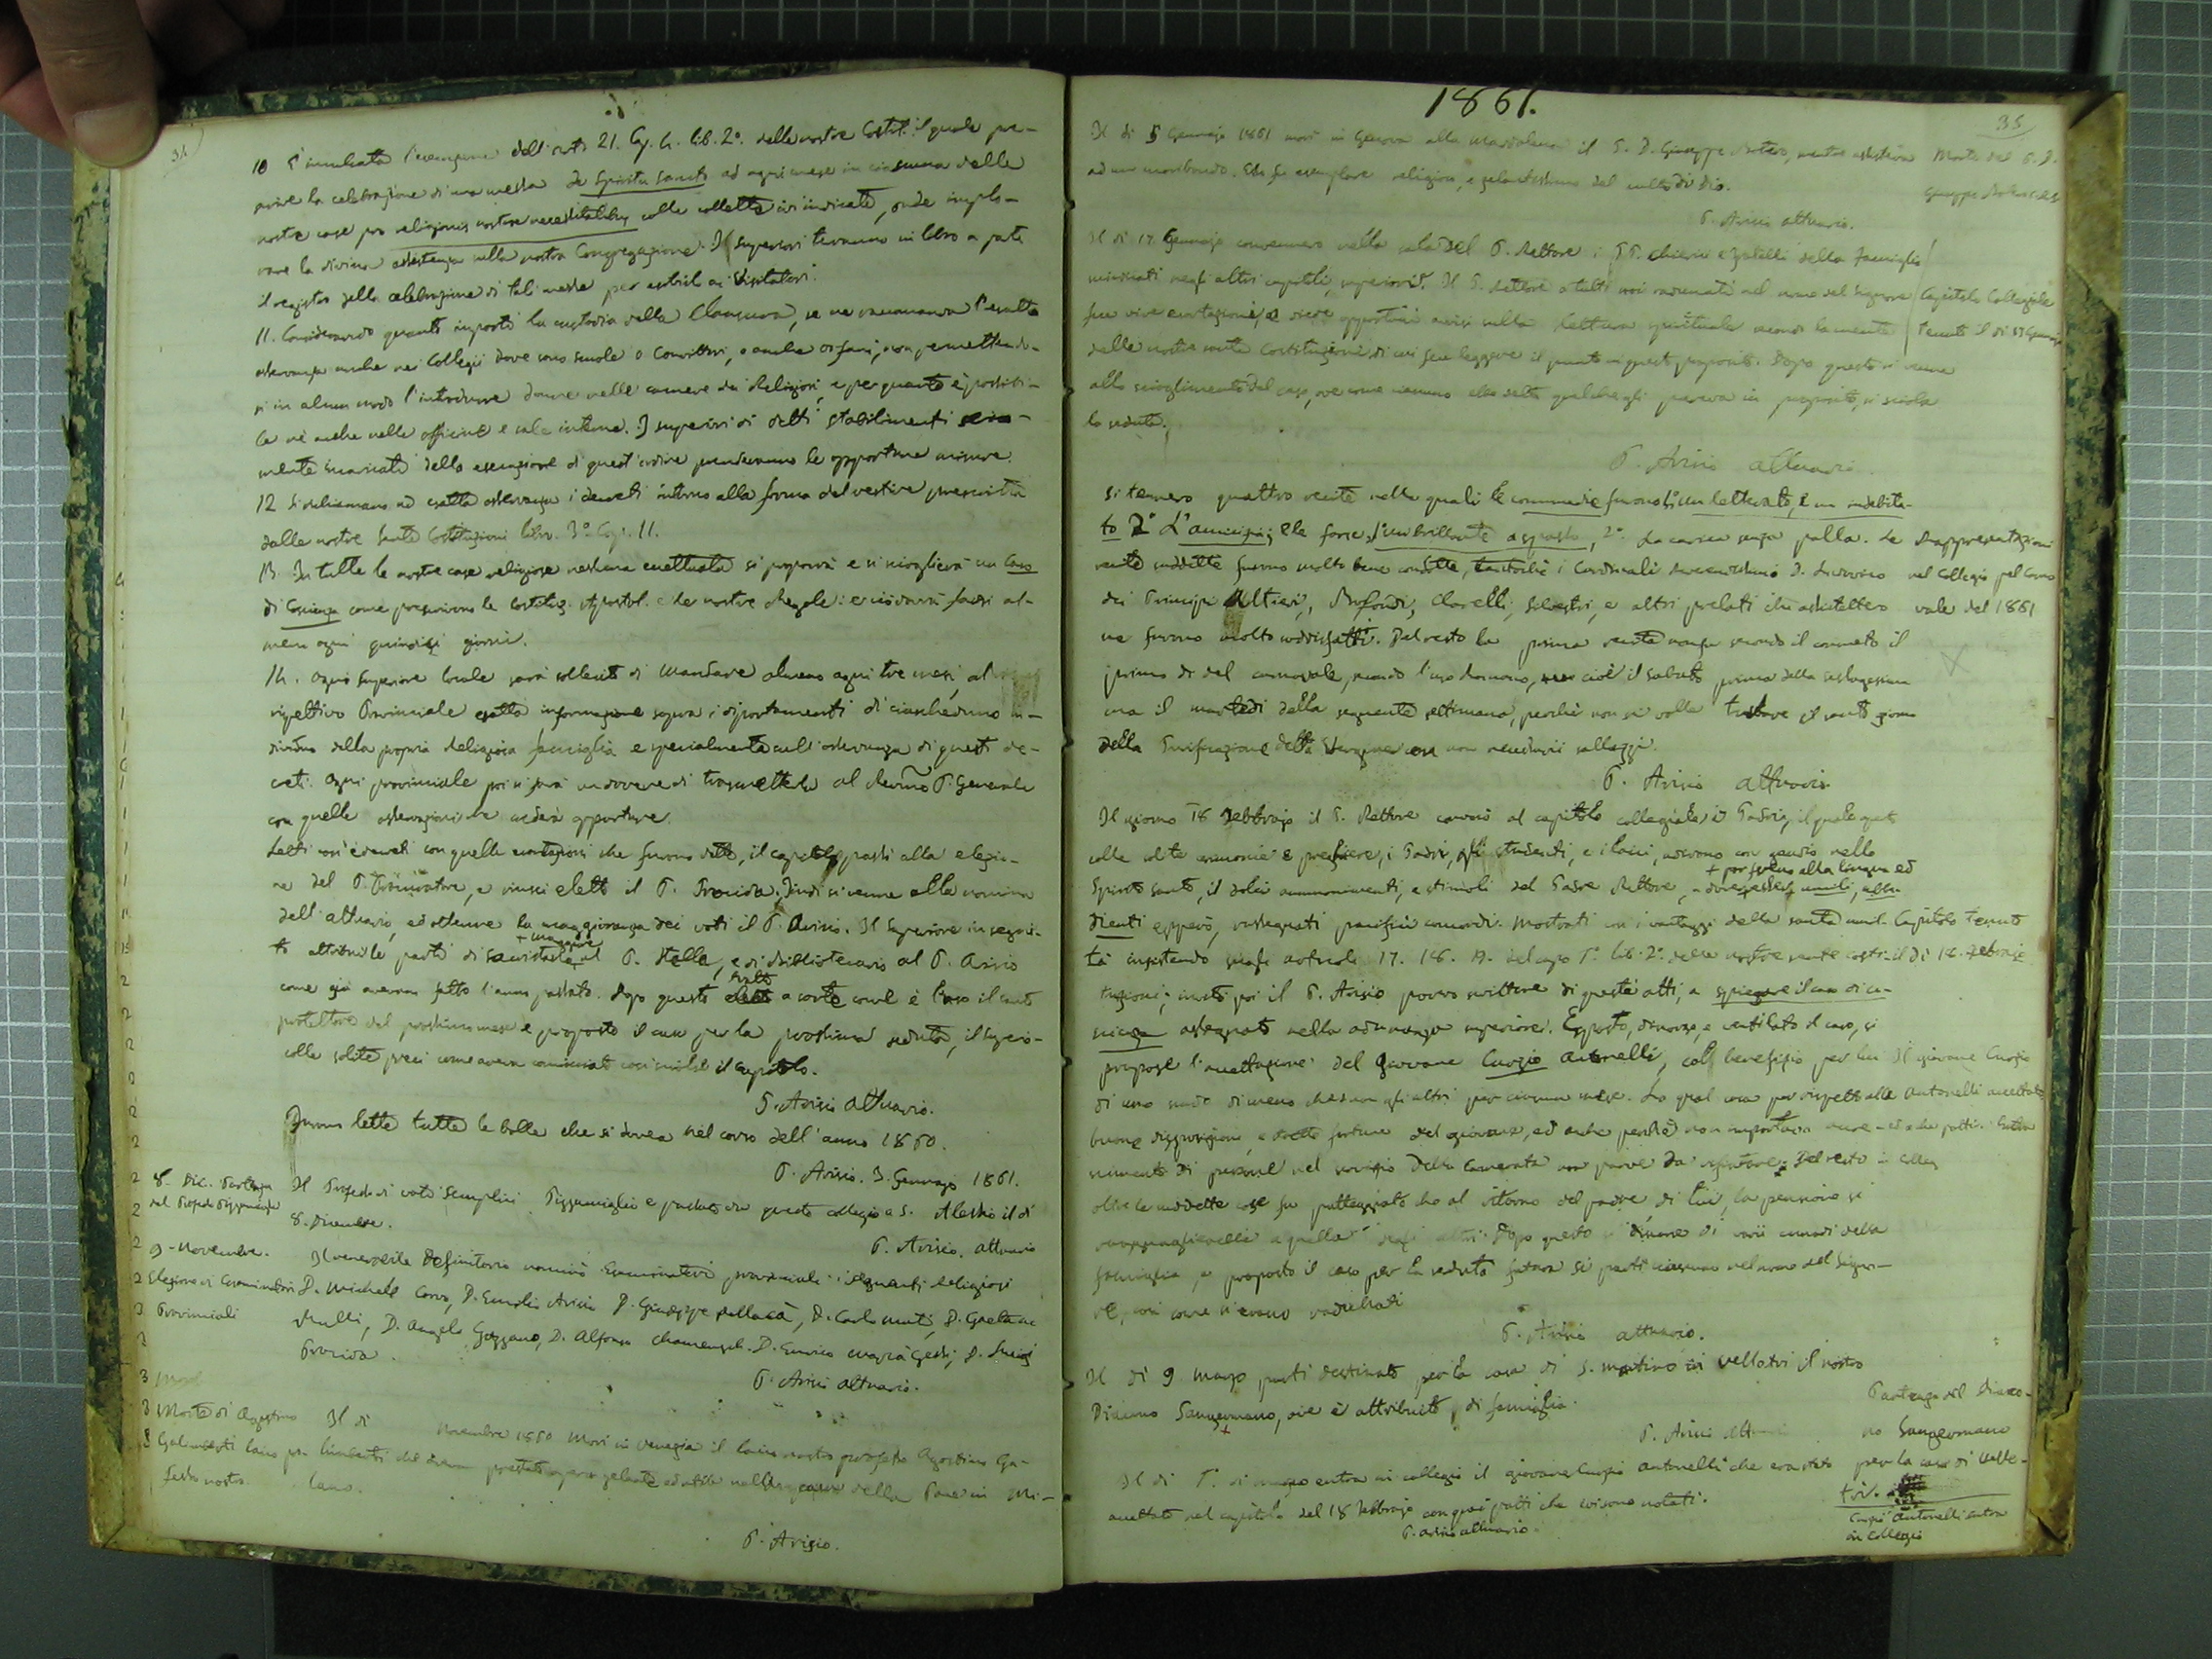 34
10 È inculcata l'esecuzione dell'art. 21. Cap. 4. lib. 2°. delle nostre Costit. il quale pre-
scrive la celebrazione di una messa de Spiritu Sancto ad ogni mese in ciascuna delle
nostre case pro religionis nostrae necessitatibus colle collette ivi indicate, onde implo-
rare la divina assistenza sulla nostra Congregazione. I Superiori terranno un libro a parte
il registro della celebrazione di tali messe per esibirlo ai Visitatori.
11. Considerando quanto importi la custodia della Clausura, se ne raccomanda l'esatta
osservanza anche nei Collegi dove sono scuole o Convittori, o anche orfani, non permettendo-
si in alcun modo l'introdurre donne nelle camere dei Religiosi, e per quanto è possibi-
le nè anche nelle officine e sale interne. I superiori di detti stabilimenti seria-
mente incaricati della esecuzione di quest'ordine prenderanno le opportune misure.
12 Si richiamano ad esatta osservanza i decreti intorno alla forma del vestire prescritta
dalle nostre Sante Costituzioni libro. 3° Cap. 11.
13. In tutte le nostre case religiose nessuna eccettuata si proporrà e si scioglierà un Caso
di Coscienza come prescrivono le Costituz. Apostol. e le nostre Regole: e ciò dovrà farsi al-
meno ogni quindici giorni.
14. Ogni Superiore locale sarà sollecito di mandare almeno ogni tre mesi, al
rispettivo Provinciale esatta informazione sopra i diportamenti di ciascheduno in-
dividuo della propria Religiosa famiglia e specialmente sull'osservanza di questi de-
creti. Ogni provinciale poi si farà un dovere di trasmetterle al Revmo P. Generale
con quelle osservazioni che crederà opportune.
Letti così i decreti con quelle esortazioni che furono dette, il capitolo passò alla elezio-
ne del P. Procuratore, e riuscì eletto il P. Procida. Indi si venne alla nomina
dell'attuario, ed ottenne la maggioranza dei voti il P. Avisio. Il Superiore in segui-
+ maggiore
to attribuì le parti di sacristano al P. Stella, e di Bibliotecario al P. Avisio
come già avevano fatto l'anno passato. Dopo questo tratto a sorte com'è l'uso il santo
protettore del prossimo mese e proposto il caso per la prossima seduta, il Superio-
colle solite preci come aveva cominciato così sciolse il Capitolo.
P. Avisio attuario.
Furono lette tutte le bolle che si dovea nel corso dell'anno 1860.
P. Avisio. 3. Gennajo 1861.
8. Dic. Partenza
del Professo Pizzamiglio
Il Professo di voti Semplici Pizzamiglio è passato da questo collegio a S. Alessio il dì
8. Dicembre.
P. Avisio. attuario
9 - Novembre.
Elezione di Esaminatori
Provinciali
Il venerabile Definitorio nominò Esaminatori provinciali i seguenti religiosi
D. Michele Corvo, D. Emilio Avisio D. Giuseppe Pallacà, D. Carlo Muti, D. Gaetano
Mulli, D. Angelo Gazzano, D. Alfonso D. Enrico Maria Gessi, D. Luigi
Procida.
P. Avisio attuario.
Morte di Agostino
Galimberti laico pro-
fesso nostro.
Il dì Novembre 1860 morì in Venezia il laico nostro professo Agostino Ga-
limberti che aveva prestato opera zelante ed abile nella casa della Pace in Mi-
lano.
P. Avisio.
1861.
35
Il dì 5 Gennajo 1861 morì in Genova alla Maddalena il P. D. Giuseppe Botero, mentre assisteva
ad un moribondo. Esso fu esemplare religioso, e zelantissimo del culto di Dio.
P. Avisio attuario.
Morte del P. D.
Giuseppe Botero
Il dì 17 Gennajo convennero nella sala del P. Rettore i PP. chierici e fratelli della famiglia
nominati negli altri capitoli superiori. Il P. Rettore a tutti noi radunati nel nome del Signore
fece vive esortazioni, e diede opportuni avvisi sulla lettura spirituale secondo la mente
delle nostre sante Costituzioni, di cui fece leggere il punto a questo proposito. Dopo questo si venne
allo scioglimento del caso, ove come ciascuno ebbe detto quel che gli pareva in proposito, si sciolse
la seduta.
Capitolo Collegiale
tenuto il dì 17 Gennajo
P. Avisio attuario.
Si tennero quattro recite nelle quali le commedie furono 1° Un letterato, e un indebita-
to 2° L'amicizia; e le farse, 1° un brillante a spasso, 2° La carica senza palla. Le
recite suddette furono molto bene condotte, tantochè i Cardinali D. Ludovico
dei Principi Altieri, Roberti, Clarelli, Silvestri, e altri prelati che assistettero
ne furono molto soddisfatti. Del resto la prima recita non fu secondo il consueto il
primo dì del carnovale, secondo l'uso Romano, cioè il Sabato prima della sessagesima
ma il martedì della seguente settimana, perchè non si volle turbare il santo giorno
della Purificazione della Vergine con non necessarii sollazzi.
Rappresentazioni
nel Collegio pel Carno
vale del 1861
P. Avisio attuario
Il giorno 18 Febbrajo il P. Rettore convocò al capitolo collegiale i Padri, il quale aperto
colle solite cerimonie e preghiere, i Padri, gli studenti, e i laici, udirono con gaudio nello
+ por freno alla lingua ed
Spirito Santo, i dolci ammonimenti, e stimoli del Padre Rettore, a dover essere umili, obbe-
dienti epperò, rassegnati pacifici concordi. Mostrati così i vantaggi della santa umil-
tà insistendo sugli articoli 17. 18. 19. del capo 1° lib. 2° delle nostre sante costi-
tuzioni; invitò poi il P. Avisio povero scrittore di questi atti, a spiegare il caso di co-
scienza assegnato nella adunanza superiore. Esposto, discorso, e ventilato il caso, si
propose l'accettazione del giovane Curzio Antonelli, col benefizio per lui
di uno scudo di meno che non gli altri per ciascun mese. La qual cosa per rispetto alle
buone disposizioni, e strette fortune del giovane, ed anche perchè non importava accre-
scimento di persone nel servizio della Camerata non parve da rifiutare. Del resto
oltre le suddette cose fu patteggiato che al ritorno del padre di lui, la pensione si
ragguaglierebbe a quella degli altri. Dopo questo si discorse di varii comodi della
famiglia, e proposto il caso per la seduta futura si partì ciascuno nel nome del Signo-
re, così come si erano radunati
Capitolo tenuto
il dì 18. Febrajo
Il giovane Curzio
Antonelli accettato
ed a che patti. Entra
in Colleg
P. Avisio attuario.
Il dì 9 Marzo partì destinato per la casa di S. Martino in Velletri il nostro
Diacono Sangermano, ove è attribuito di famiglia.
P. Avisio Att
Partenza del Diaco-
no Sangermano
per la casa di Velle-
tri.
Il dì 1°. di Marzo entra in collegio il giovane Curzio Antonelli che era stato
accettato nel capitolo del 18 Febbrajo con quei patti che ivi sono notati.
P. Avisio attuario.
Curzio Antonelli entra
in Collegio